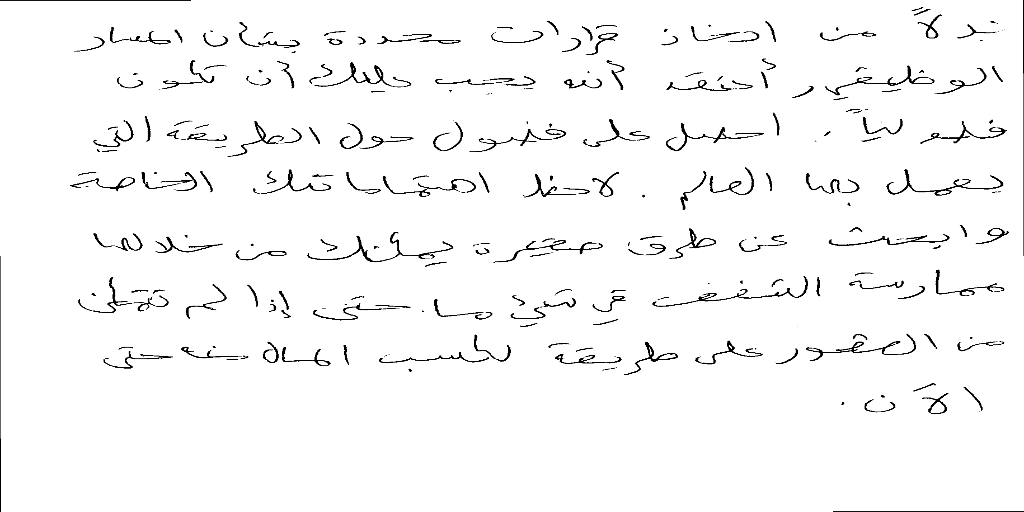 بدلاً من اتخاذ قرارات محددة بشأن المسار
الوظيفي، أعتقد أنه يجب عليك أن تكون
فضولياً. احصل على فضول حول الطريقة التي
يعمل بها العالم. لاحظ اهتماماتك الخاصة
وابحث عن طرق صغيرة يمكنك من خلالها
ممارسة الشغف في شيء ما. حتى إذا لم تتمكن
من العثور على طريقة لكسب المال منه حتى
الآن.